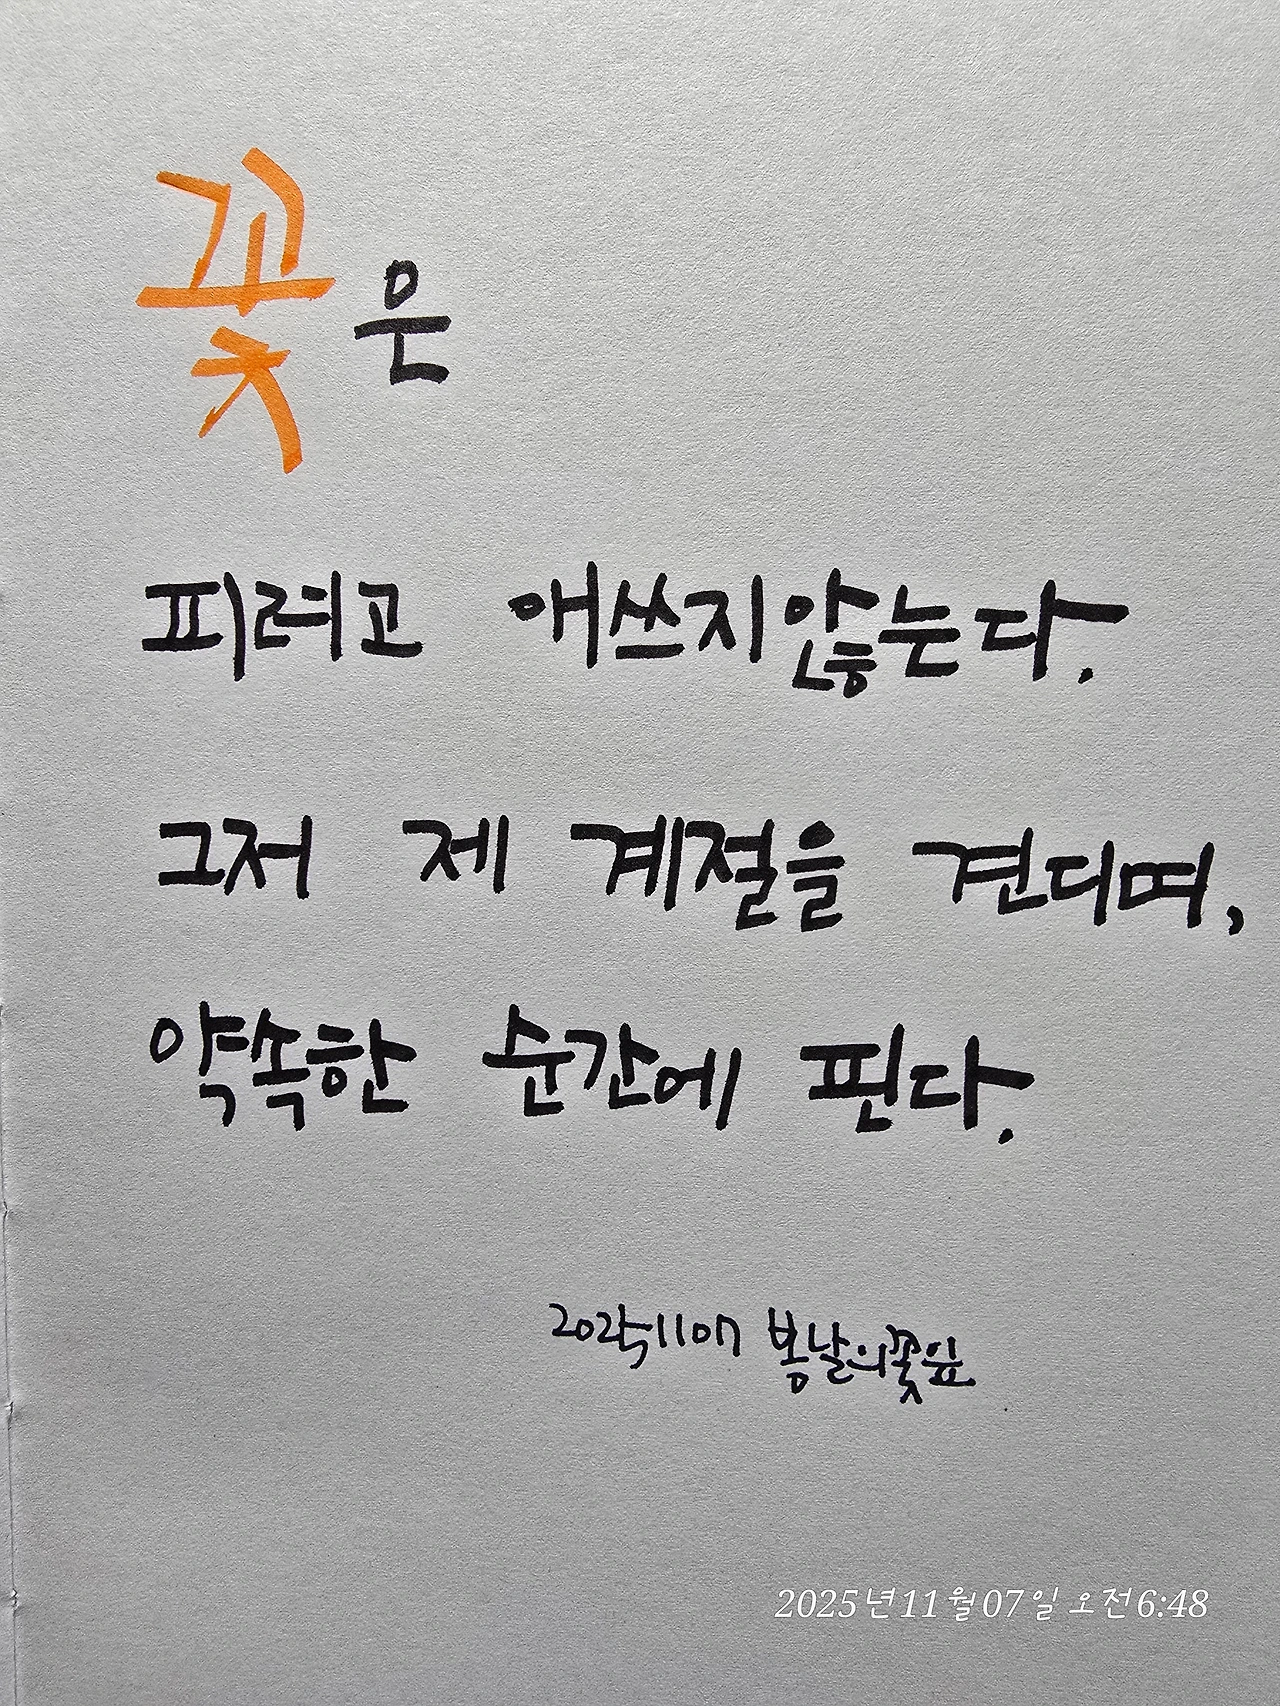 꽃은
피려고 애쓰지않는다.
그저 제 계절을 견디며,
약속한 순간에 핀다.
20251107 봄날의꽃잎
2025년11월07일 오전6:48